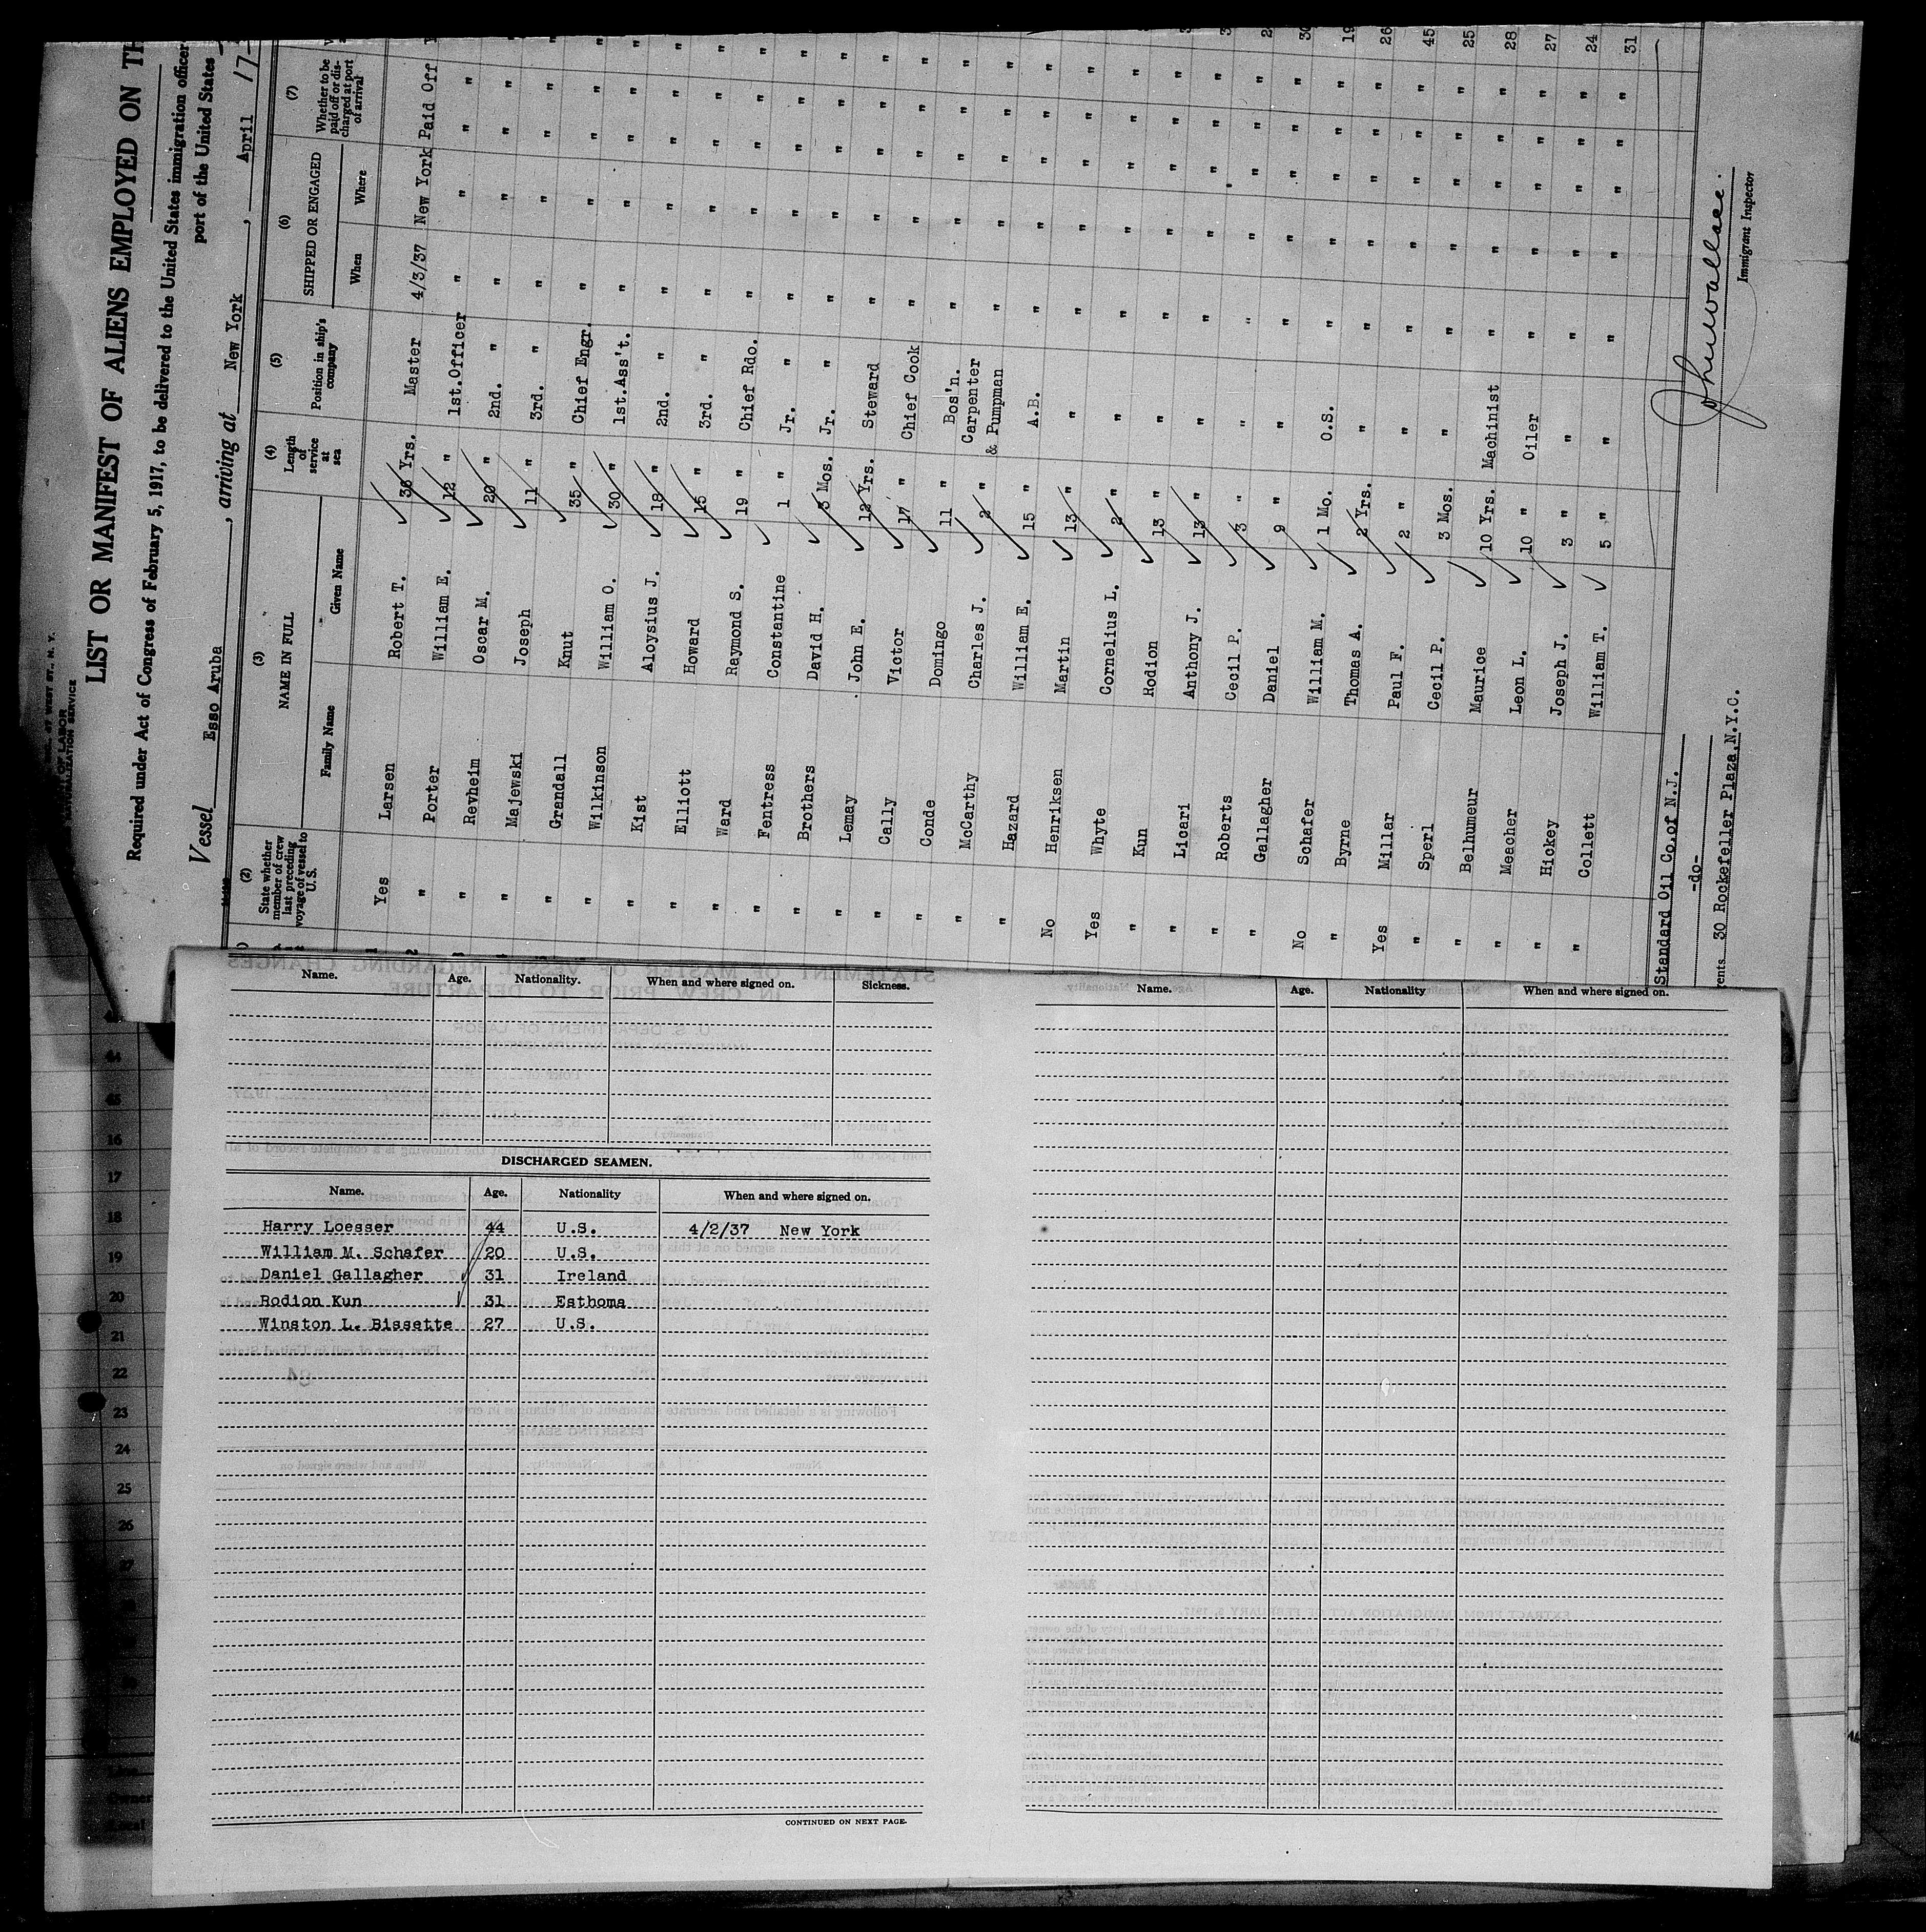 LIST OR MANIFEST OF ALIENS EMPLOYED ON TH
Required under Act of Congress of February 5, 1917, to be delivered to the United States immigration officer
port of the United States
Vessel Esso Aruba, arriving at New York, April 17
(2) State whether member of crew last preceding voyage of vessel to U.S.
(3) NAME IN FULL
Family Name Given Name
(4) Length of service at sea
(5) Position in ship's company
(6) SHIPPED OR ENGAGED
When Where
(7) Whether to be paid off or discharged at port of arrival
1 Yes Larsen Robert T. 36 Yrs. Master 4/3/37 New York Paid Off
2 " Porter William E. 12 " 1st.Officer " " "
" Revheim Oscar M. 20 " 2nd. " " " "
" Majewski Joseph 11 " 3rd. " " " "
" Grandall Knut 35 " Chief Engr. " " "
" Wilkinson William O. 30 " 1st.Ass't. " " "
" Kist Aloysius J. 18 " 2nd. " " " "
" Elliott Howard 15 " 3rd. " " " "
" Ward Raymond S. 19 " Chief Rdo. " " "
" Fentress Constantine 1 " Jr. " " " "
" Brothers David H. 3 Mos. Jr. " " " "
" Lemay John E. 12 Yrs. Steward " " "
" Cally Victor 17 " Chief Cook " " "
" Conde Domingo 11 " Bos'n. " " "
" McCarthy Charles J. 2 " Carpenter & Pumpman " " "
" Hazard William E. 15 " A.B. " " "
No Henriksen Martin 13 " " " " "
Yes Whyte Cornelius L. 2 " " " " "
" Kun Rodion 13 " " " " "
" Licari Anthony J. 13 " " " " "
" Roberts Cecil P. 3 " " " " "
" Gallagher Daniel 9 " " " " "
No Schafer William M. 1 Mo. O.S. " " "
" Byrne Thomas A. 2 Yrs. " " " "
Yes Millar Paul F. 2 " " " " "
" Sperl Cecil P. 3 Mos. " " " "
" Belhumeur Maurice 10 Yrs. Machinist " " "
" Meacher Leon L. 10 " Oiler " " "
" Hickey Joseph J. 3 " " " " "
" Collett William T. 5 " " " " "
19
26
45
25
28
27
24
31
Standard Oil Co.of N.J.
-do-
30 Rockefeller Plaza, N.Y.C.
Immigrant Inspector
Name. Age. Nationality. When and where signed on. Sickness.
DISCHARGED SEAMEN.
Name. Age. Nationality When and where signed on.
Harry Loesser 44 U.S. 4/2/37 New York
William M. Schafer 20 U.S.
Daniel Gallagher 31 Ireland
Rodion Kun 31 Esthoma
Winston L. Bissette 27 U.S.
CONTINUED ON NEXT PAGE.
Name. Age. Nationality When and where signed on.
16
17
18
19
20
21
22
23
24
25
26